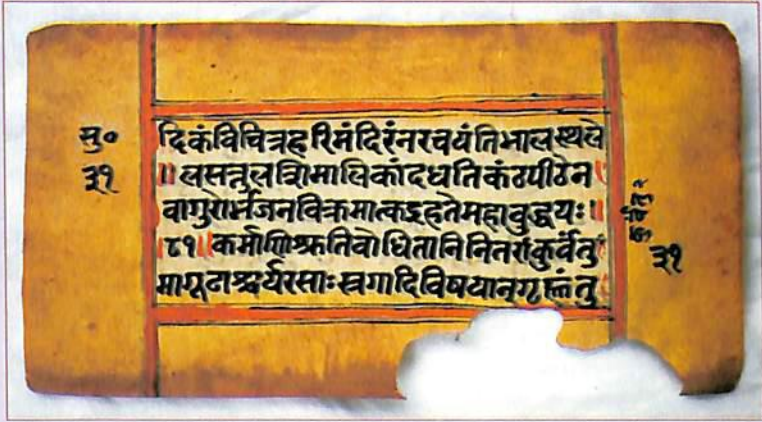 सु०
३१
दिकंविचित्रहरिमंदिरंनरचयंतिभालस्थले
॥लसत्तुलत्रिमालिकांदधतिकंठपीठेन
वागुरोर्भजनविक्रमात्कइहतेमहाबुद्धयः॥
॥८१॥कर्माणिश्रुतिबोधितानिनितरांकुर्वंतु
मागूढाश्चर्यरसाःस्त्रगादिविषयान्गृह्णंतु
३१